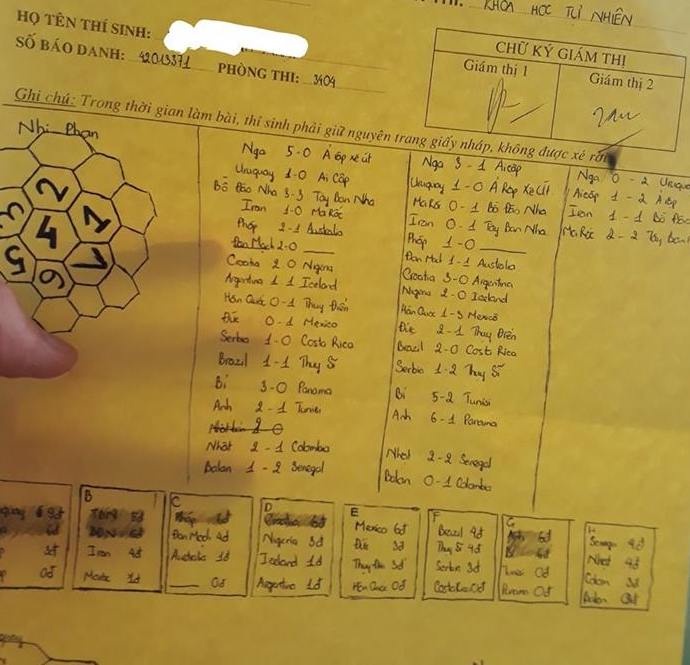 KHOA HỌC TỰ NHIÊN
HỌ TÊN THÍ SINH:
SỐ BÁO DANH: 42013371 PHÒNG THI: 3404
CHỮ KÝ GIÁM THỊ
Giám thị 1 Giám thị 2
Ghi chú: Trong thời gian làm bài, thí sinh phải giữ nguyên trang giấy nháp, không được xé rời
Nhị Phân
2
3 1
4
5 1
6
Nga 5-0 Ả rập xê út
Uruguay 1-0 Ai Cập
Bồ Đào Nha 3-3 Tây Ban Nha
Iran 1-0 Ma Rốc
Pháp 2-1 Australia
Đan Mạch 2-0
Croatia 2 0 Nigeria
Argentina 1 1 Iceland
Hàn Quốc 0-1 Thụy Điển
Đức 0-1 Mexico
Serbia 1-0 Costa Rica
Brazil 1-1 Thụy Sĩ
Bỉ 3-0 Panama
Anh 2-1 Tunisi
Nhật 2-1 Colombia
Balan 1-2 Senegal
Nga 3-1 Ai cập
Uruguay 1-0 Ả Rập Xê Út
Ma Rốc 0-1 Bồ Đào Nha
Iran 0-1 Tây Ban Nha
Pháp 1-0
Đan Mạch 1-1 Australia
Croatia 3-0 Argentina
Nigeria 2-0 Iceland
Hàn Quốc 1-3 Mexico
Đức 2-1 Thụy Điển
Brazil 2-0 Costa Rica
Serbia 1-2 Thụy Sĩ
Bỉ 5-2 Tunisi
Anh 6-1 Panama
Nhật 2-2 Senegal
Balan 0-1 Colombia
Nga 0-2 Urugua
Ai cập 1-2 Ả rập
Iran 1-1 Bồ Đào
Ma Rốc 2-2 Tây Ban
guay 6 9đ
6đ
3đ
0đ
B
TBN 5đ
BĐN 5đ
Iran 4đ
Marốc 1đ
C
Pháp 6đ
Đan Mạch 4đ
Australia 1đ
0đ
D
Croatia 6đ
Nigeria 3đ
Iceland 1đ
Argentina 1đ
E
Mexico 6đ
Đức 3đ
Thụy Điển 3đ
Hàn Quốc 0đ
F
Brazil 4đ
Thụy Sĩ 4đ
Serbia 3đ
CostaRica 0đ
G
Anh 6đ
Bỉ 6đ
Tunisi 0đ
Panama 0đ
H
Senegal 4đ
Nhật 4đ
Colom 3đ
Balan 0đ